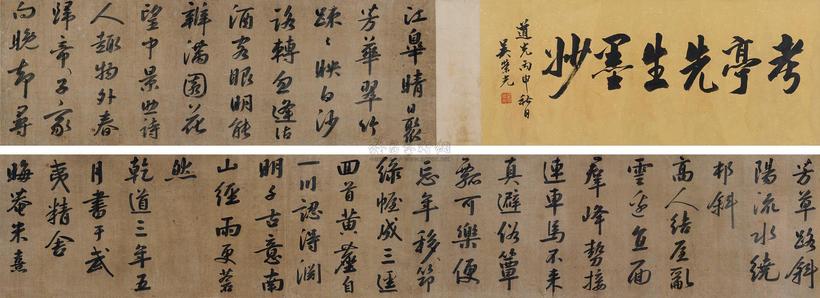 考亭先生墨妙
道光丙申秋日
吳榮光
江皋晴日聚
芳華翠竹
踈〻映白沙
路轉忽逢沽
酒客眼明能
辦滿園花
望中景助詩
人趣物外春
歸帝子家
向晚却尋
芳草路斜
陽流水繞
邨斜
高人結屋亂
雲邊直面
羣峰勢接
連車馬不来
真避俗簞
瓢可樂便
忘年移節
綠幄成三逕
回首黄塵自
一川認得淵
明千古意南
山經雨更蒼
然
乾道三年五
月書于武
夷精舍
晦菴朱熹